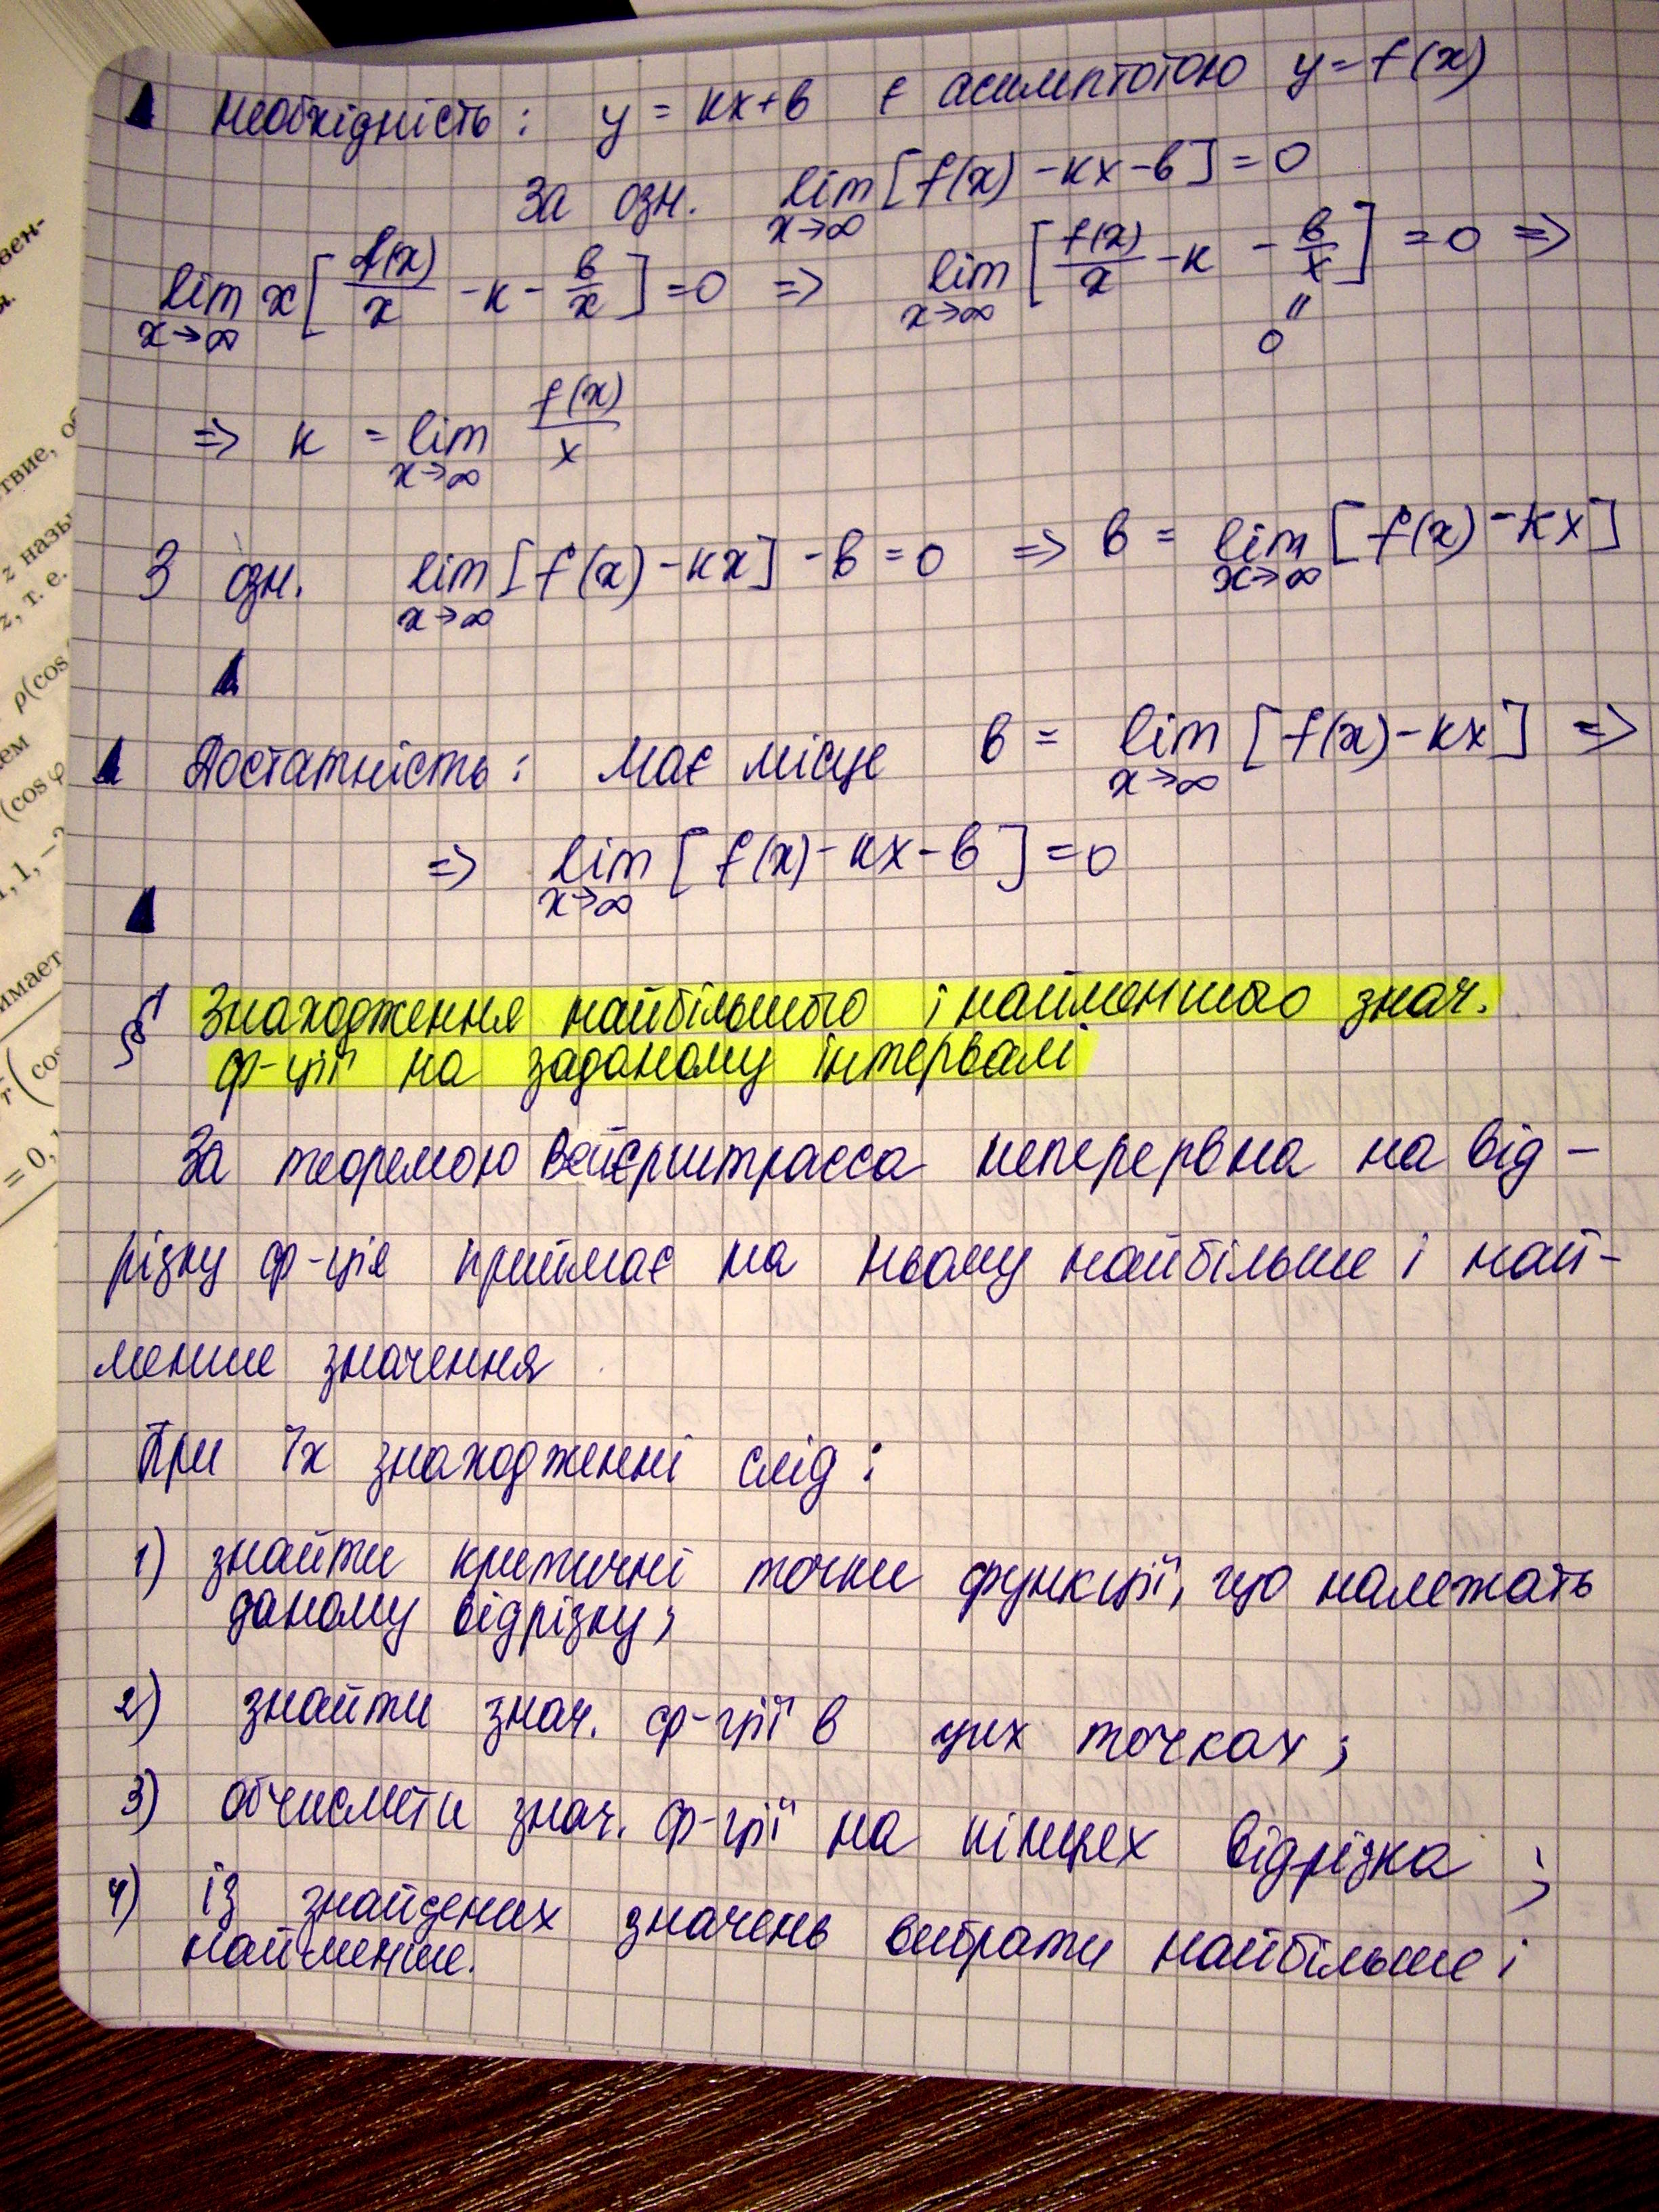 Необхідність: y = kx+b є асимптотою y = f(x)
За озн. lim x→∞ [f(x) - kx - b] = 0
lim x→∞ x[f(x)/x - k - b/x] = 0 => lim x→∞ [f(x)/x - k - b/x] = 0 =>
"
0
=> k = lim x→∞ f(x)/x
З озн. lim x→∞ [f(x) - kx] - b = 0 => b = lim x→∞ [f(x) - kx]
Достатність: Має місце b = lim x→∞ [f(x) - kx] =>
=> lim x→∞ [f(x) - kx - b] = 0
§ Знаходження найбільшого і найменшого знач.
ф-ції на заданому інтервалі
За теоремою Вейєрштрасса неперервна на від-
різку ф-ція приймає на ньому найбільше і най-
менше значення
При їх знаходженні слід:
1) знайти критичні точки функції, що належать
даному відрізку;
2) знайти знач. ф-ції в цих точках;
3) обчислити знач. ф-ції на кінцях відрізка;
4) із знайдених значень вибрати найбільше і
найменше.
вен-
ствие, об
z назы
z, т. е.
ρ(cos
ем
(cos φ
1, 1, -2
имает
(cos
= 0, 1